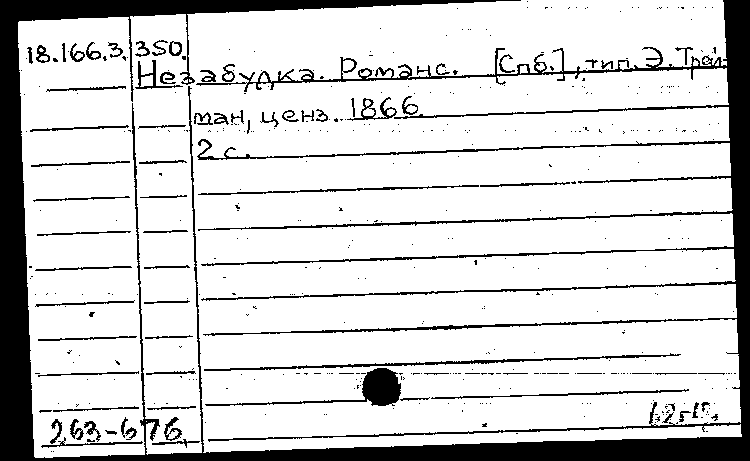 18.166.3.350.
Незабудка. Романс. [Спб.], тип. Э. Трей-
ман, ценз. 1866.
2 с.
263-676